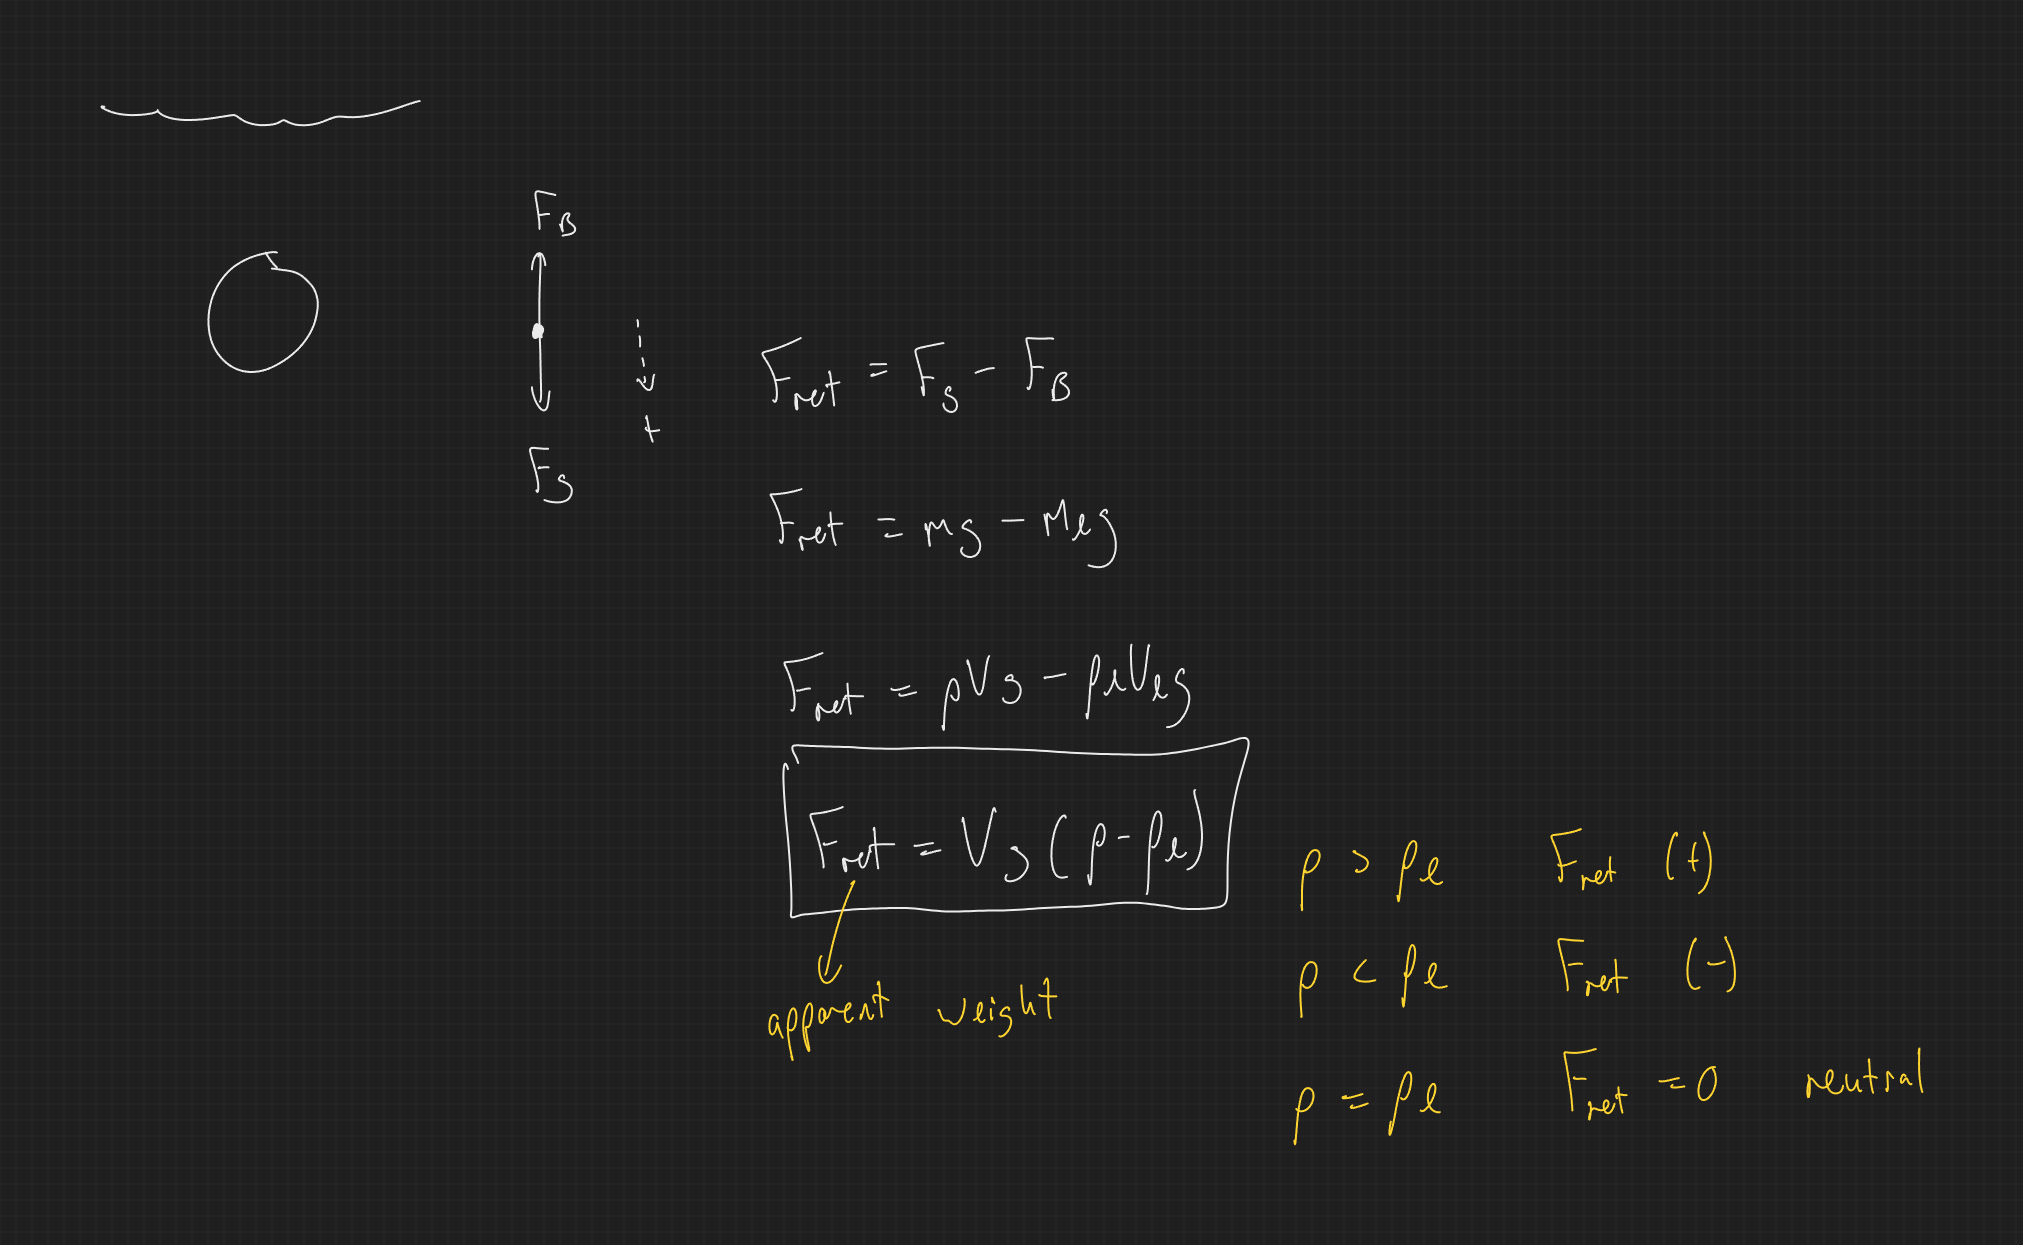 F_B
F_g
+
F_net = F_g - F_B
F_net = mg - m_ℓ g
F_net = ρVg - ρ_ℓ V_ℓ g
F_net = Vg(ρ - ρ_ℓ)
apparent weight
ρ > ρ_ℓ F_net (+)
ρ < ρ_ℓ F_net (-)
ρ = ρ_ℓ F_net = 0 neutral